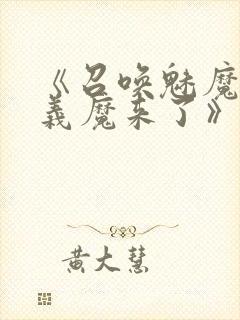 《召唤魅魔
義魔来了》
黄大慧